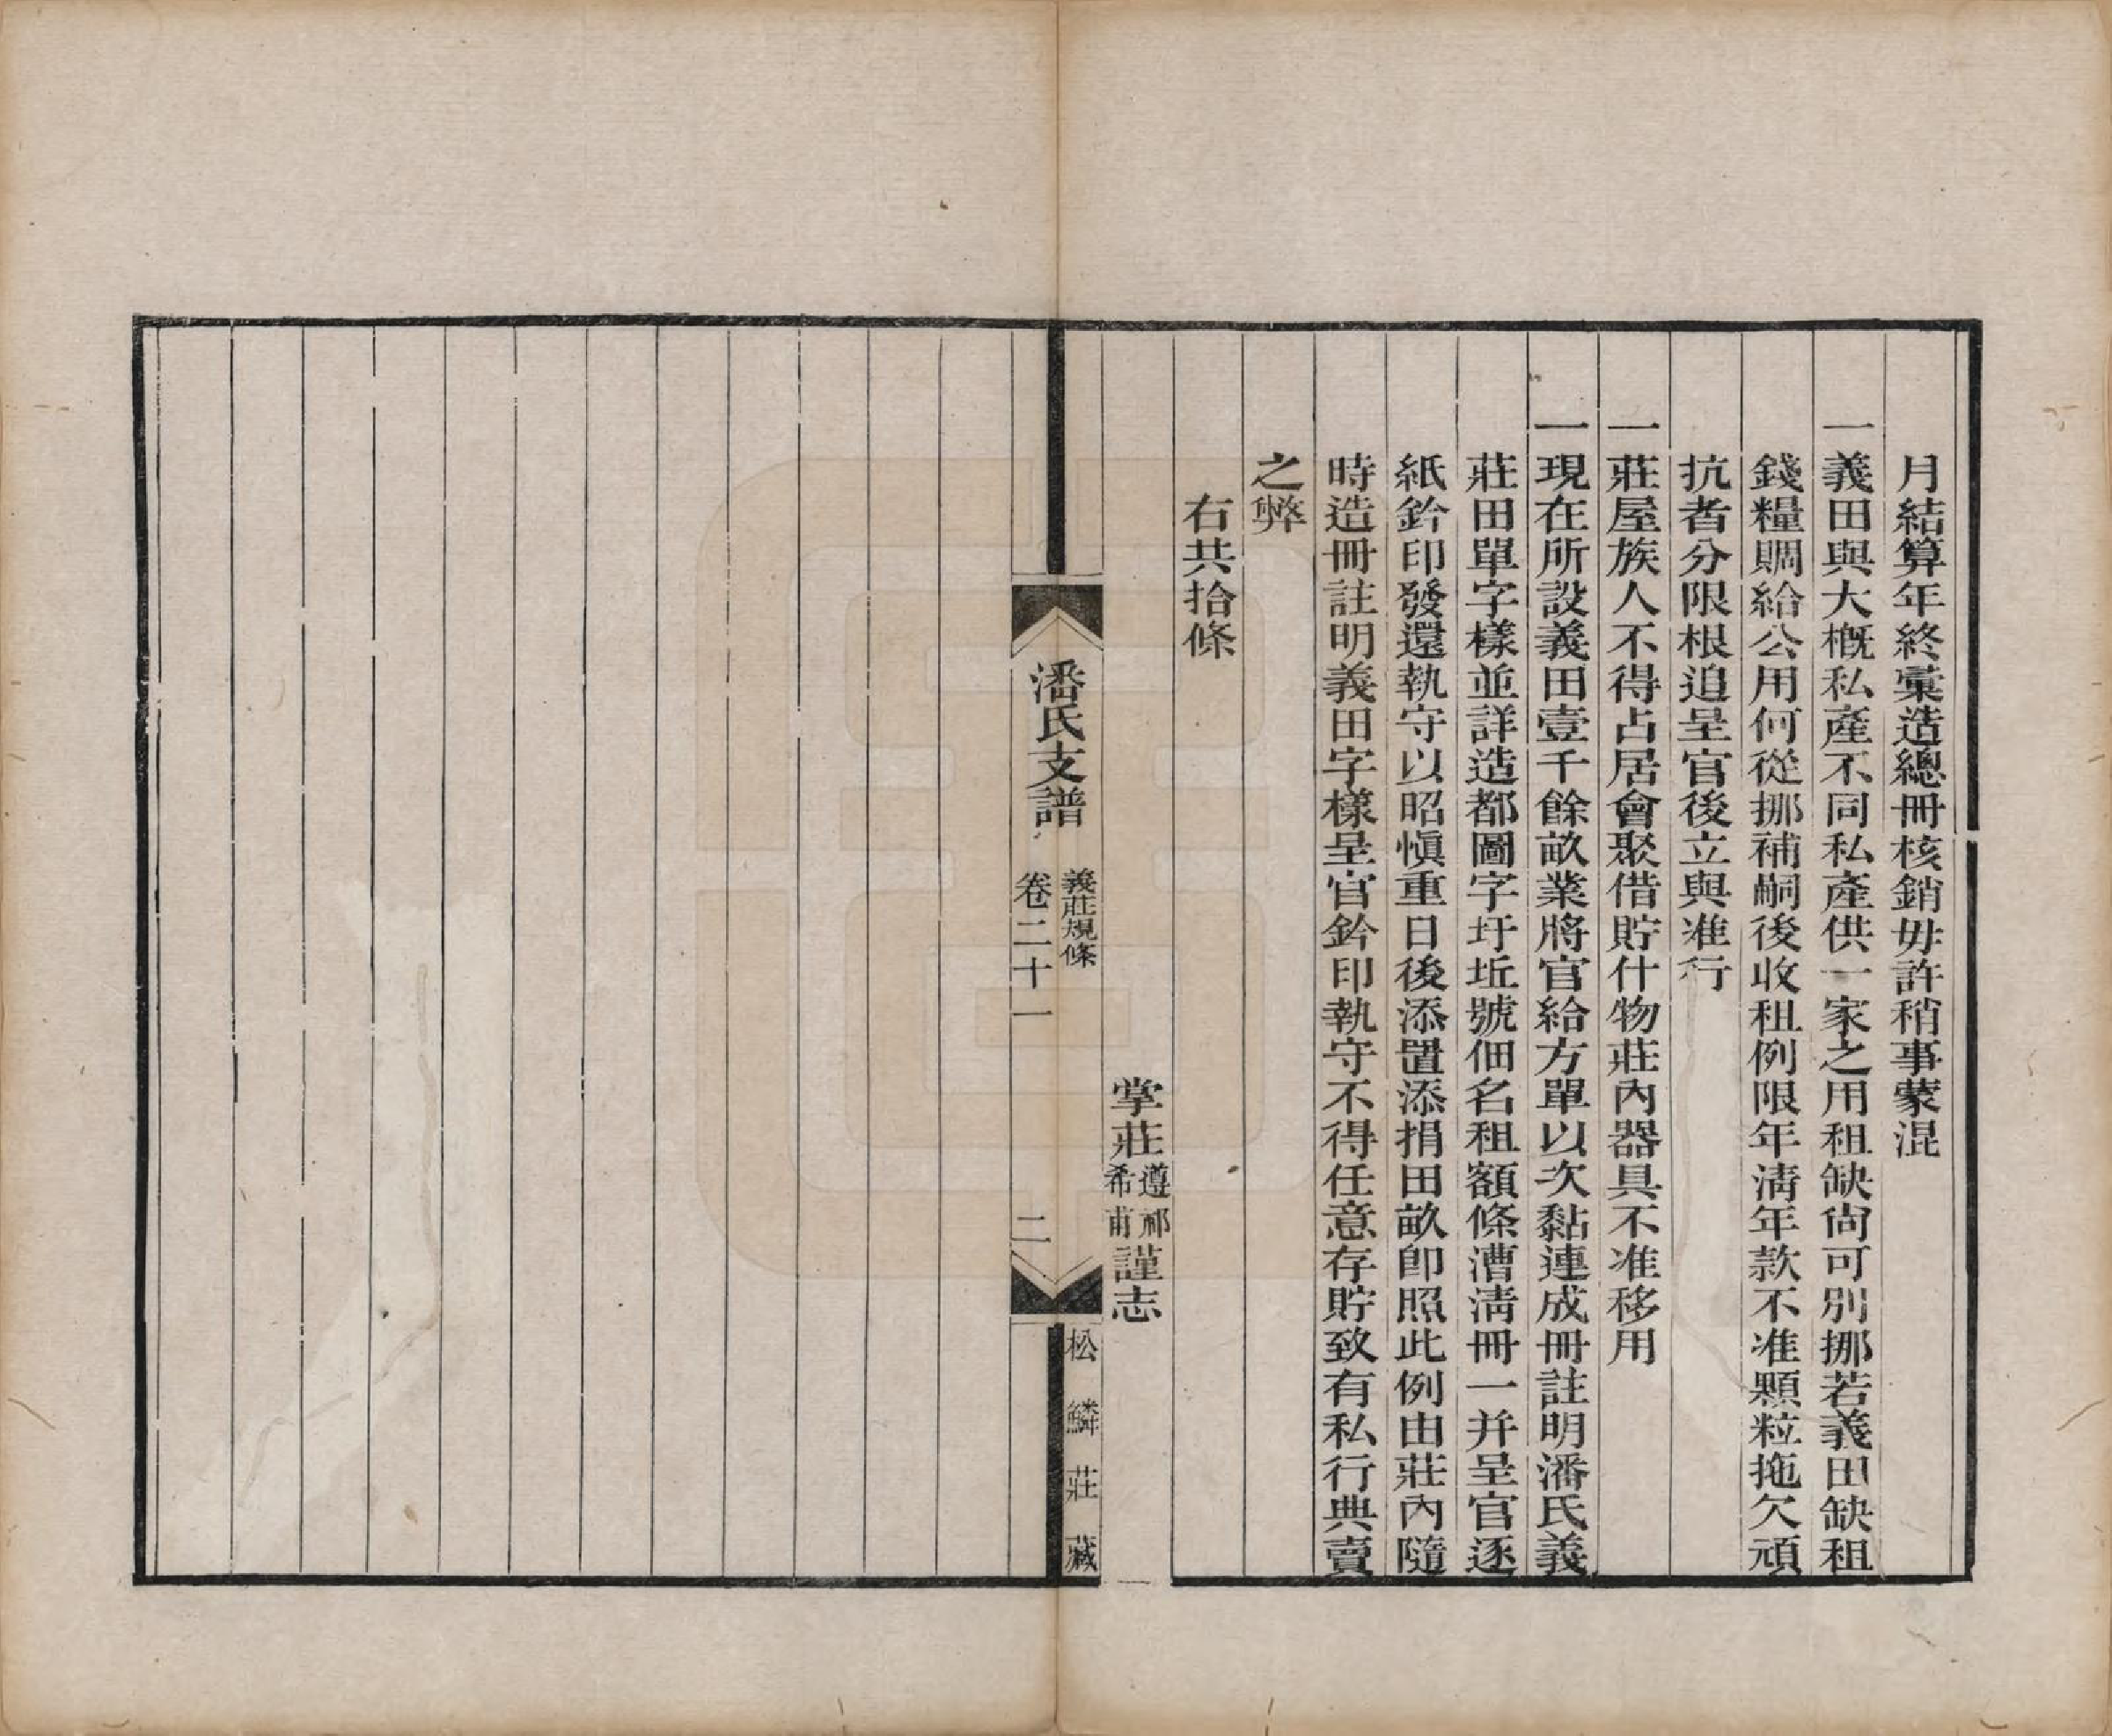 月結算年終彙造總冊核銷毋許稍事蒙混
一義田與大槪私產不同私產供一家之用租缺尙可別挪若義田缺租
錢糧賙給公用何從挪補嗣後收租例限年淸年款不准顆粒拖欠頑
抗者分限根追呈官後立與准行
一莊屋族人不得占居會聚借貯什物莊內器具不准移用
一現在所設義田壹千餘畝業將官給方單以次黏連成冊註明潘氏義
莊田單字樣並詳造都圖字圩坵號佃名租額條漕淸冊一并呈官逐
紙鈐印發還執守以昭愼重日後添置添捐田畝卽照此例由莊內隨
時造冊註明義田字樣呈官鈐印執守不得任意存貯致有私行典賣
之弊
右共拾條
掌莊遵祁希甫謹志
潘氏支譜
義莊規條
卷二十一
二
松鱗莊藏